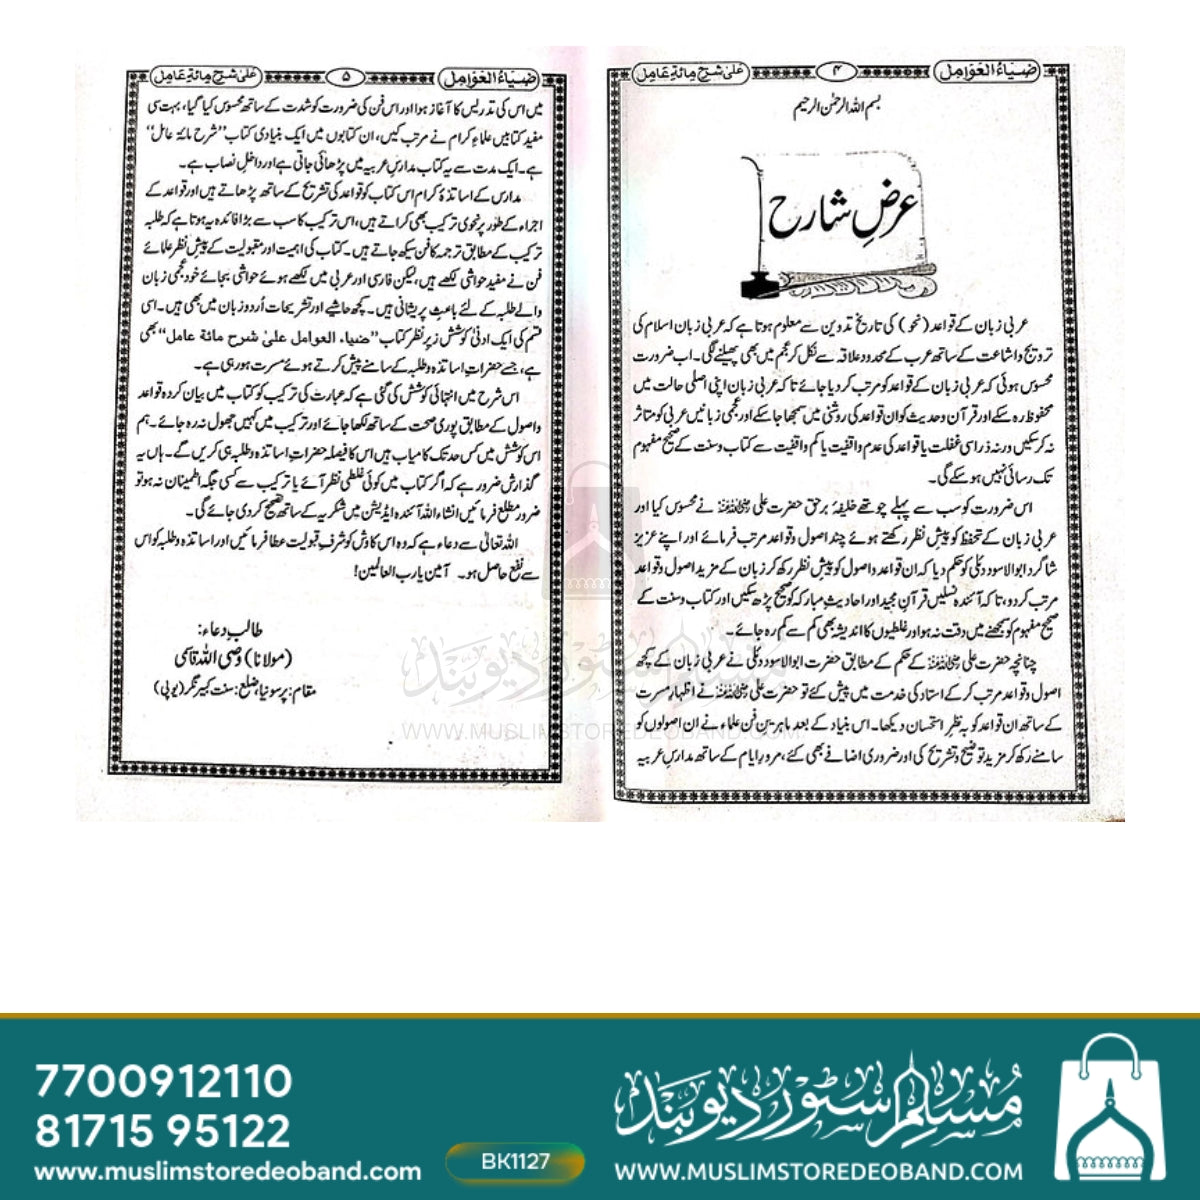 ضیاءُ العَوامِل
۴
علیٰ شرح مِائۃ عَامِل
بسم اللہ الرحمٰن الرحیم
عرضِ شارح
عربی زبان کے قواعد (نحو) کی تاریخ تدوین سے معلوم ہوتا ہے کہ عربی زبان اسلام کی
ترویج واشاعت کے ساتھ عرب کے محدود علاقہ سے نکل کر عجم میں بھی پھیلنے لگی۔ اب ضرورت
محسوس ہوئی کہ عربی زبان کے قواعد کو مرتب کردیا جائے تاکہ عربی زبان اپنی اصلی حالت میں
محفوظ رہ سکے اور قرآن وحدیث کو ان قواعد کی روشنی میں سمجھا جاسکے اور عجمی زبانیں عربی کو متاثر
نہ کرسکیں ورنہ ذراسی غفلت یا قواعد کی عدم واقفیت یا کم واقفیت سے کتاب وسنت کے صحیح مفہوم
تک رسائی نہیں ہوسکے گی۔
اس ضرورت کو سب سے پہلے چوتھے خلیفۂ برحق حضرت علی رضی اللہ عنہ نے محسوس کیا اور
عربی زبان کے تحفظ کو پیشِ نظر رکھتے ہوئے چند اصول وقواعد مرتب فرمائے اور اپنے عزیز
شاگرد ابوالاسود دئلی کو حکم دیا کہ ان قواعد واصول کو پیشِ نظر رکھ کر زبان کے مزید اصول وقواعد
مرتب کردو، تاکہ آئندہ نسلیں قرآنِ مجید اور احادیثِ مبارکہ کو صحیح پڑھ سکیں اور کتاب وسنت کے
صحیح مفہوم کو سمجھنے میں دقت نہ ہو اور غلطیوں کا اندیشہ بھی کم سے کم رہ جائے۔
چنانچہ حضرت علی رضی اللہ عنہ کے حکم کے مطابق حضرت ابوالاسود دئلی نے عربی زبان کے کچھ
اصول وقواعد مرتب کرکے استاد کی خدمت میں پیش کئے تو حضرت علی رضی اللہ عنہ نے اظہارِ مسرت
کے ساتھ ان قواعد کو بہ نظرِ استحسان دیکھا۔ اس بنیاد کے بعد ماہرینِ فن علماء نے ان اصولوں کو
سامنے رکھ کر مزید توضیح وتشریح کی اور ضروری اضافے بھی کئے، مرورِ ایام کے ساتھ مدارسِ عربیہ
ضیاءُ العَوامِل
۵
علیٰ شرح مِائۃ عَامِل
میں اس کی تدریس کا آغاز ہوا اور اس فن کی ضرورت کو شدت کے ساتھ محسوس کیا گیا، بہت سی
مفید کتابیں علماءِ کرام نے مرتب کیں، ان کتابوں میں ایک بنیادی کتاب ”شرح مائۃ عامل“
ہے۔ ایک مدت سے یہ کتاب مدارسِ عربیہ میں پڑھائی جاتی ہے اور داخلِ نصاب ہے۔
مدارس کے اساتذۂ کرام اس کتاب کو قواعد کی تشریح کے ساتھ پڑھاتے ہیں اور قواعد کے
اجراء کے طور پر نحوی ترکیب بھی کراتے ہیں، اس ترکیب کا سب سے بڑا فائدہ یہ ہوتا ہے کہ طلبہ
ترکیب کے مطابق ترجمہ کا فن سیکھ جاتے ہیں۔ کتاب کی اہمیت اور مقبولیت کے پیشِ نظر علمائے
فن نے مفید حواشی لکھے ہیں، لیکن فارسی اور عربی میں لکھے ہوئے حواشی بجائے خود عجمی زبان
والے طلبہ کے لئے باعثِ پریشانی ہیں۔ کچھ حاشیے اور تشریحات اُردو زبان میں بھی ہیں۔ اسی
قسم کی ایک ادنیٰ کوشش زیرِ نظر کتاب ”ضیاء العوامل علیٰ شرح مائۃ عامل“ بھی
ہے، جسے حضراتِ اساتذہ وطلبہ کے سامنے پیش کرتے ہوئے مسرت ہورہی ہے۔
اس شرح میں انتہائی کوشش کی گئی ہے کہ عبارت کی ترکیب کو کتاب میں بیان کردہ قواعد
واصول کے مطابق پوری صحت کے ساتھ لکھا جائے اور ترکیب میں کہیں جھول نہ رہ جائے۔ ہم
اس کوشش میں کس حد تک کامیاب ہیں اس کا فیصلہ حضراتِ اساتذہ وطلبہ ہی کریں گے۔ ہاں یہ
گذارش ضرور ہے کہ اگر کتاب میں کوئی غلطی نظر آئے یا ترکیب سے کسی جگہ اطمینان نہ ہو تو
ضرور مطلع فرمائیں انشاء اللہ آئندہ ایڈیشن میں شکریہ کے ساتھ تصحیح کردی جائے گی۔
اللہ تعالیٰ سے دعاء ہے کہ وہ اس کاوش کو شرفِ قبولیت عطا فرمائیں اور اساتذہ وطلبہ کو اس
سے نفع حاصل ہو۔ آمین یارب العالمین!
طالبِ دعاء:
(مولانا) وصی اللہ قاسمی
مقام: پرسونیا ضلع: سنت کبیر نگر (یوپی)
مسلم سٹور دیوبند
WWW.MUSLIMSTOREDEOBAND.COM
7700912110
81715 95122
www.muslimstoredeoband.com
BK1127
مسلم سٹور دیوبند
WWW.MUSLIMSTOREDEOBAND.COM